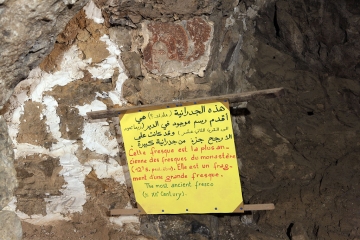 هذه الجدرانية هي
أقدم رسم موجود في الدير
وقد كانت على
الأرجح جزء من جدرانية كبيرة.
Cette fresque est la plus an_
cienne des fresques du monastère
Elle est un frag_
ment d'une grande fresque.
The most ancient fresco
Century).